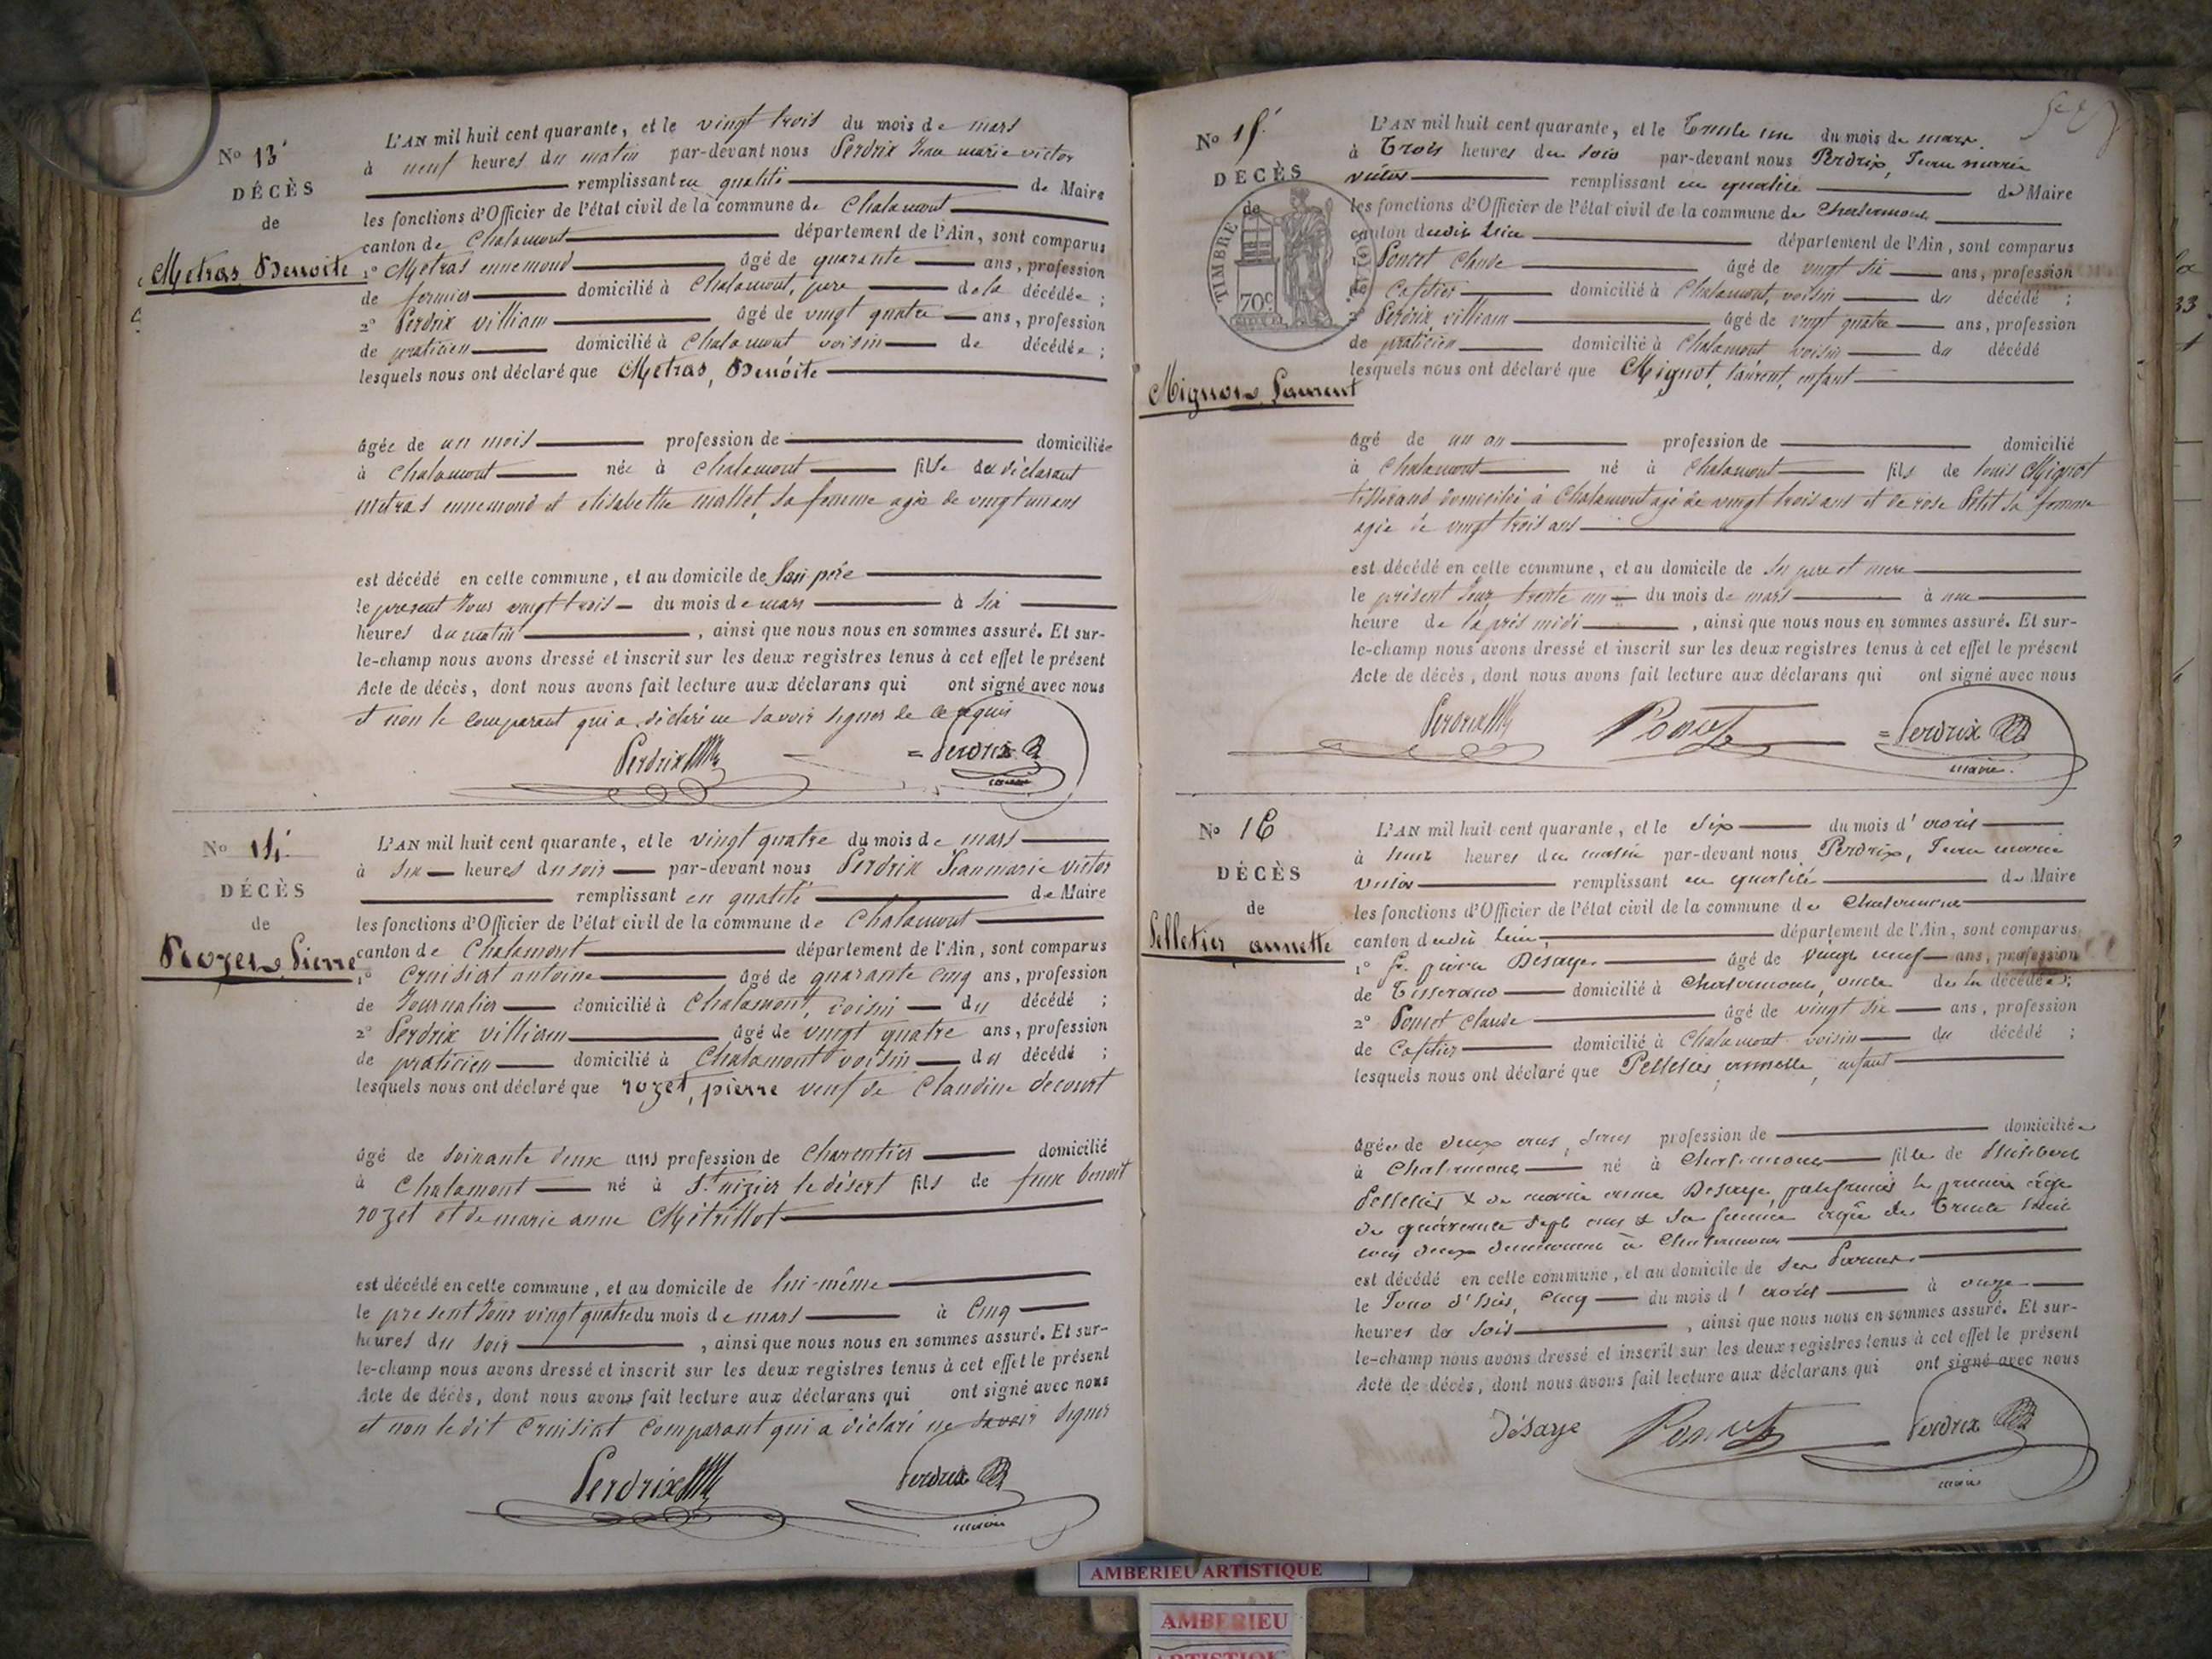 No 13
DÉCÈS
de
Metras Benoite
L'AN mil huit cent quarante, et le vingt trois du mois de mars
à neuf heures du matin par-devant nous Perdrix Jean marie victor
remplissant en qualité de Maire
les fonctions d'Officier de l'état civil de la commune de Chalamont
canton de Chalamont département de l'Ain, sont comparus
1o Metras ennemond âgé de quarante ans, profession
de fermier domicilié à Chalamont, pere de la décédée ;
2o Perdrix villiam âgé de vingt quatre ans, profession
de praticien domicilié à Chalamont voisin de décédée ;
lesquels nous ont déclaré que Metras, Benoite
âgée de un mois profession de domiciliée
à Chalamont née à Chalamont fille du déclarant
metras ennemond et elisabette mallet sa femme agée de vingt un ans
est décédé en cette commune, et au domicile de son père
le present Jour vingt trois du mois de mars à six
heures du matin, ainsi que nous nous en sommes assuré. Et sur-
le-champ nous avons dressé et inscrit sur les deux registres tenus à cet effet le présent
Acte de décès, dont nous avons fait lecture aux déclarans qui ont signé avec nous
et non le comparant qui a déclaré ne savoir signer de ce requis
Perdrix = Perdrix
maire
No 14
DÉCÈS
de
Rozet Pierre
L'AN mil huit cent quarante, et le vingt quatre du mois de mars
à six heures du soir par-devant nous Perdrix Jean marie victor
remplissant en qualité de Maire
les fonctions d'Officier de l'état civil de la commune de Chalamont
canton de Chalamont département de l'Ain, sont comparus
1o Cruisiat antoine âgé de quarante cinq ans, profession
de Journalier domicilié à Chalamont, voisin du décédé ;
2o Perdrix villiam âgé de vingt quatre ans, profession
de praticien domicilié à Chalamont voisin du décédé ;
lesquels nous ont déclaré que rozet, pierre veuf de Claudine decourt
âgé de soixante deux ans profession de Charentier domicilié
à Chalamont né à St. nizier le désert fils de feux benoit
rozet et de marie anne Métrillot
est décédé en cette commune, et au domicile de lui-même
le present Jour vingt quatre du mois de mars à Cinq
heures du soir, ainsi que nous nous en sommes assuré. Et sur-
le-champ nous avons dressé et inscrit sur les deux registres tenus à cet effet le présent
Acte de décès, dont nous avons fait lecture aux déclarans qui ont signé avec nous
et non le dit Cruisiat Comparant qui a déclaré ne savoir signer
Perdrix Perdrix
maire
No 15
DÉCÈS
de
TIMBRE ROYAL
70c
Mignot Laurent
L'AN mil huit cent quarante, et le Trente un du mois de mars
à Trois heures du soir par-devant nous Perdrix, Jean marie
victor remplissant en qualité de Maire
les fonctions d'Officier de l'état civil de la commune de Chalamont
canton dudit lieu département de l'Ain, sont comparus
1o Poncet Claude âgé de vingt six ans, profession
Cafetier domicilié à Chalamont, voisin du décédé ;
2o Perdrix villiam âgé de vingt quatre ans, profession
de praticien domicilié à Chalamont voisin du décédé
lesquels nous ont déclaré que Mignot, laurent, enfant
âgé de un an profession de domicilié
à Chalamont né à Chalamont fils de louis Mignot
tisserand domicilié à Chalamont agé de vingt trois ans et de rose Petit sa femme
agée de vingt trois ans
est décédé en cette commune, et au domicile de ses pere et mere
le présent Jour trente un du mois de mars à une
heure de l'après midi, ainsi que nous nous en sommes assuré. Et sur-
le-champ nous avons dressé et inscrit sur les deux registres tenus à cet effet le présent
Acte de décès, dont nous avons fait lecture aux déclarans qui ont signé avec nous
Perdrix Poncet = Perdrix
maire.
No 16
DÉCÈS
de
Pelletier annette
L'AN mil huit cent quarante, et le six du mois d'avril
à heures du matin par-devant nous Perdrix, Jean marie
victor remplissant en qualité de Maire
les fonctions d'Officier de l'état civil de la commune de Chalamont
canton dudit lieu, département de l'Ain, sont comparus
1o pierre Desaye âgé de vingt neuf ans, profession
de Tisserand domicilié à Chalamont, oncle de la décédée ;
2o Poncet Claude âgé de vingt six ans, profession
de Cafetier domicilié à Chalamont voisin du décédé ;
lesquels nous ont déclaré que Pelletier, annette, enfant
âgée de deux ans, profession de domiciliée
à Chalamont né à Chalamont fille de
Pelletier & de marie anne Desaye, le premier âgé
de quarante sept ans & sa femme agée de Trente
tous deux demeurant à Chalamont
est décédé en cette commune, et au domicile de ses Parents
le Jour d'hier, Cinq du mois d'avril à onze
heures du soir, ainsi que nous nous en sommes assuré. Et sur-
le-champ nous avons dressé et inscrit sur les deux registres tenus à cet effet le présent
Acte de décès, dont nous avons fait lecture aux déclarans qui ont signé avec nous
Désaye Poncet Perdrix
maire
AMBERIEU ARTISTIQUE
AMBERIEU
ARTISTIQUE